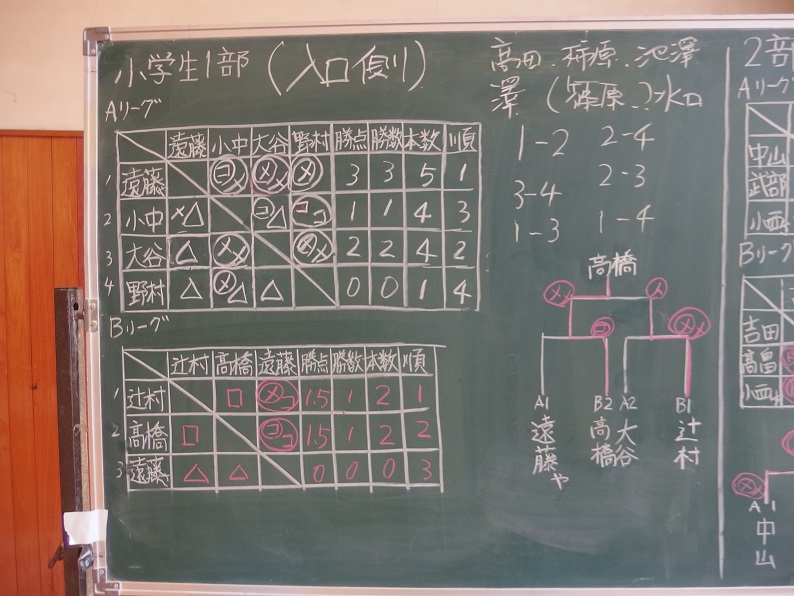 小学生1部(入口側)
Aリーグ
遠藤 小中 大谷 野村 勝点 勝数 本数 順
1 遠藤 コメ メメ メ 3 3 5 1
2 小中 ×△ コ△ ココ 1 1 4 3
3 大谷 △ メメ メメ 2 2 4 2
4 野村 △ メ△ △ 0 0 1 4
Bリーグ
辻村 高橋 遠藤 勝点 勝数 本数 順
1 辻村 □ メコ 1.5 1 2 1
2 高橋 □ ココ 1.5 1 2 2
3 遠藤 △ △ 0 0 0 3
高田.柿原.池澤
澤(篠原.)水口
1-2 2-4
3-4 2-3
1-3 1-4
高橋
メ メ
コ メメ
A1 B2 A2 B1
遠藤や 高橋 大谷 辻村
2部
Aリーグ
中山
武部
小西
Bリーグ
吉田
高畠
小西
メ
A1
中山